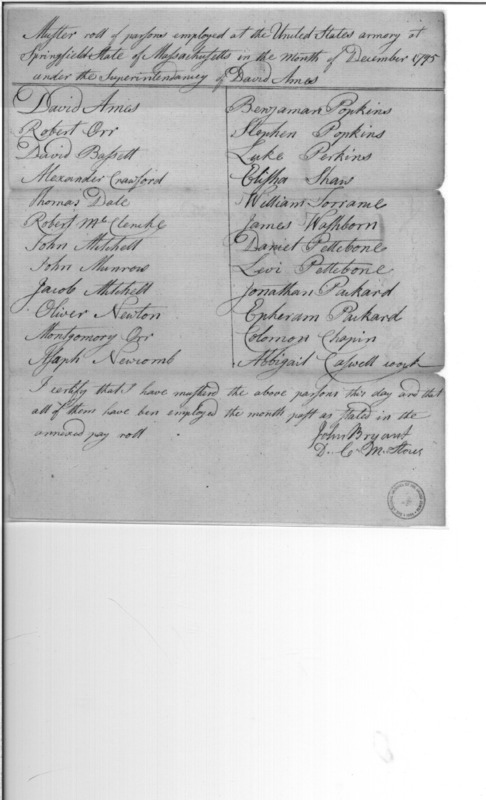 Muster roll of parsons employed at the United States armory at
Springfield State of Massachusetts in the month of December 1795
under the Superintendancy of David Ames
David Ames
Robert Orr
David Bassett
Alexander Crawford
Thomas Dale
Robert McClenche
John Mitchell
John Munrow
Jacob Mitchell
Oliver Newton
Montgomory Orr
Asaph Newcomb
Benjaman Popkins
Stephen Popkins
Luke Perkins
Elisha Shaw
William Torrame
James Washborn
Daniel Pettebone
Levi Pettebone
Jonathan Packard
Epheram Packard
Colomon Chapin
Abbigail Caswell cook
I certify that I have mustered the above parsons this day and that
all of them have ben employed the month past as stated in the
annexed pay roll
John Bryant
D. C. M. Stores